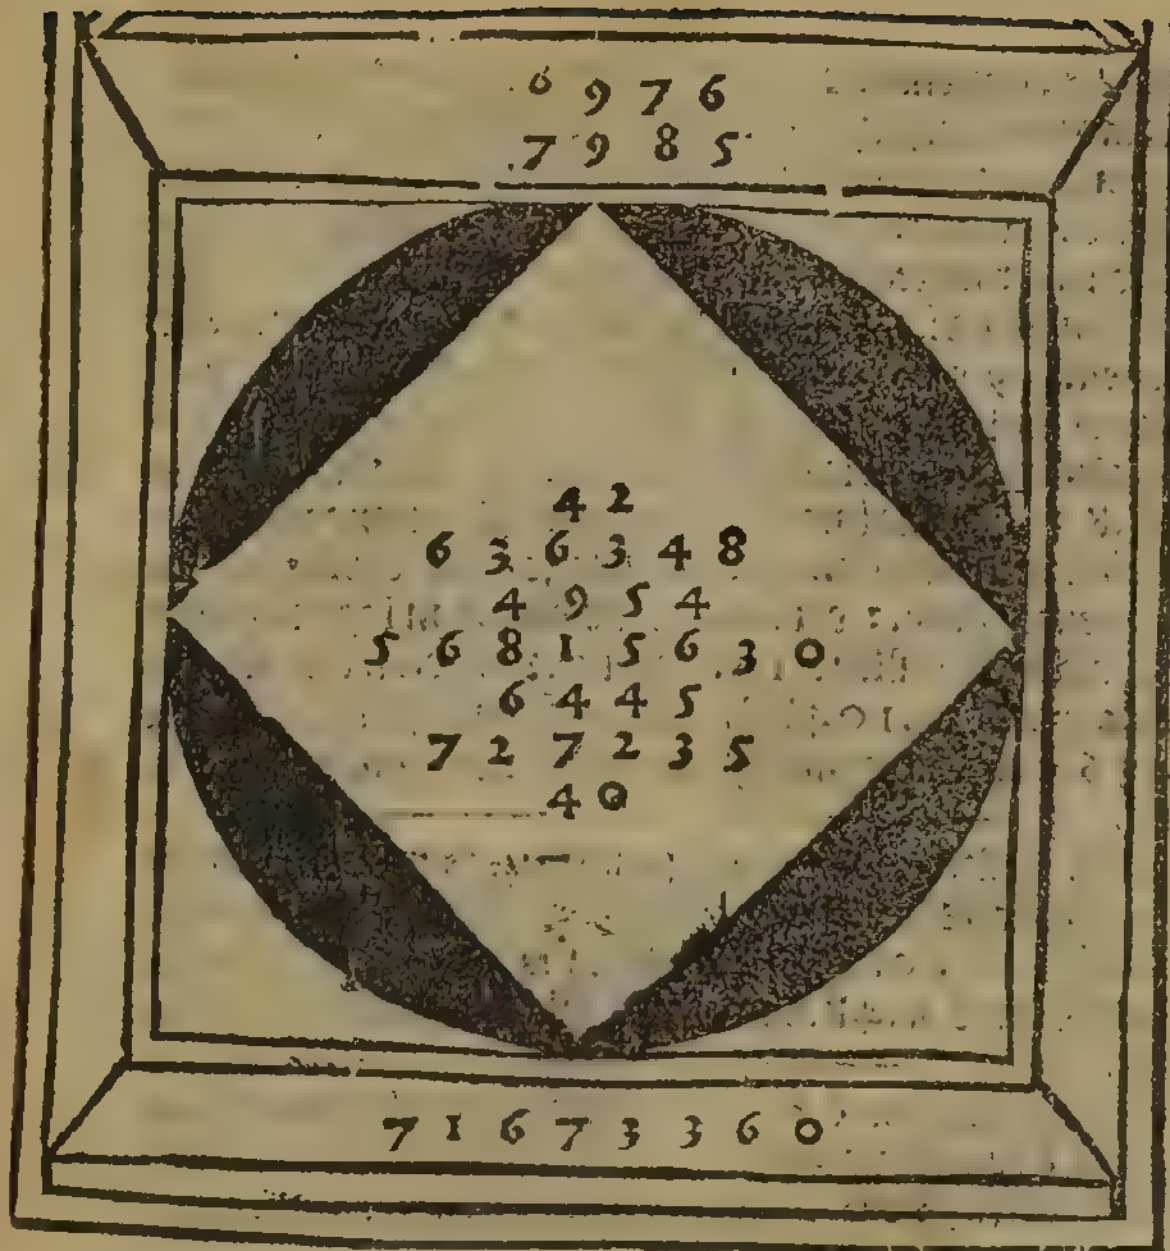 6 9 7 6
7 9 8 5
4 2
6 3 6 3 4 8
4 9 5 4
5 6 8 1 5 6 3 0
6 4 4 5
7 2 7 2 3 5
4 0
7 1 6 7 3 3 6 0